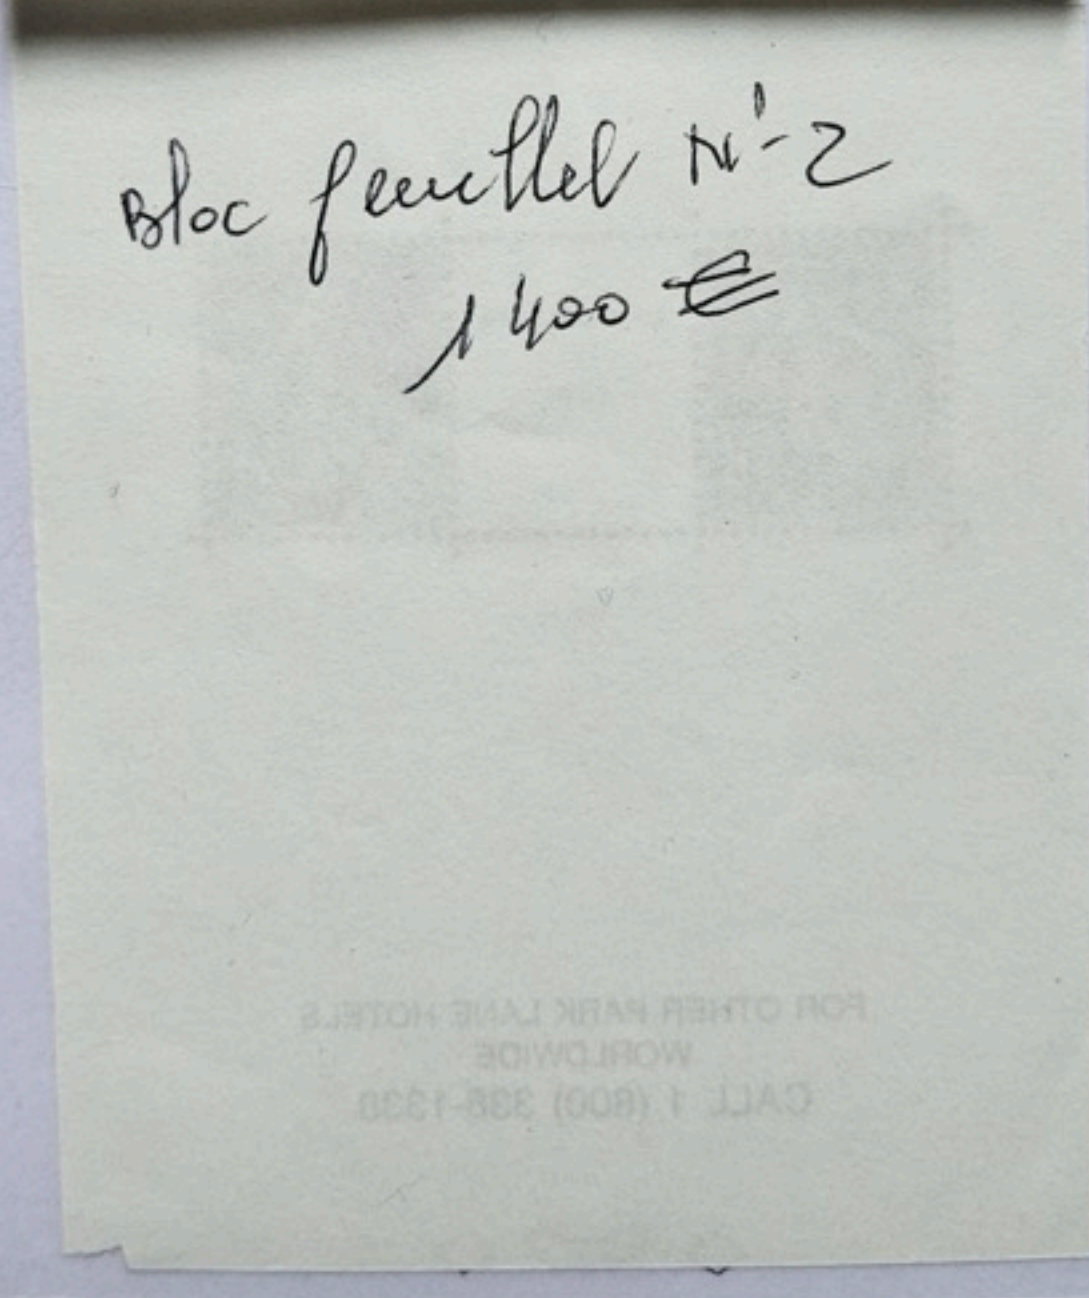 Bloc feuillet N°-2
1400 €
FOR OTHER PARK LANE HOTELS
WORLDWIDE
CALL 1 (800) 338-1338